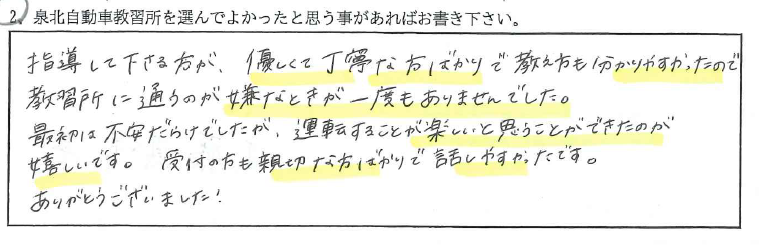 2、泉北自動車教習所を選んでよかったと思う事があればお書き下さい。
指導して下さる方が、優しくて丁寧な方ばかりで教え方も分かりやすかったので
教習所に通うのが嫌なときが一度もありませんでした。
最初は不安だらけでしたが、運転することが楽しいと思うことができたのが
嬉しいです。 受付の方も親切な方ばかりで話しやすかったです。
ありがとうございました!